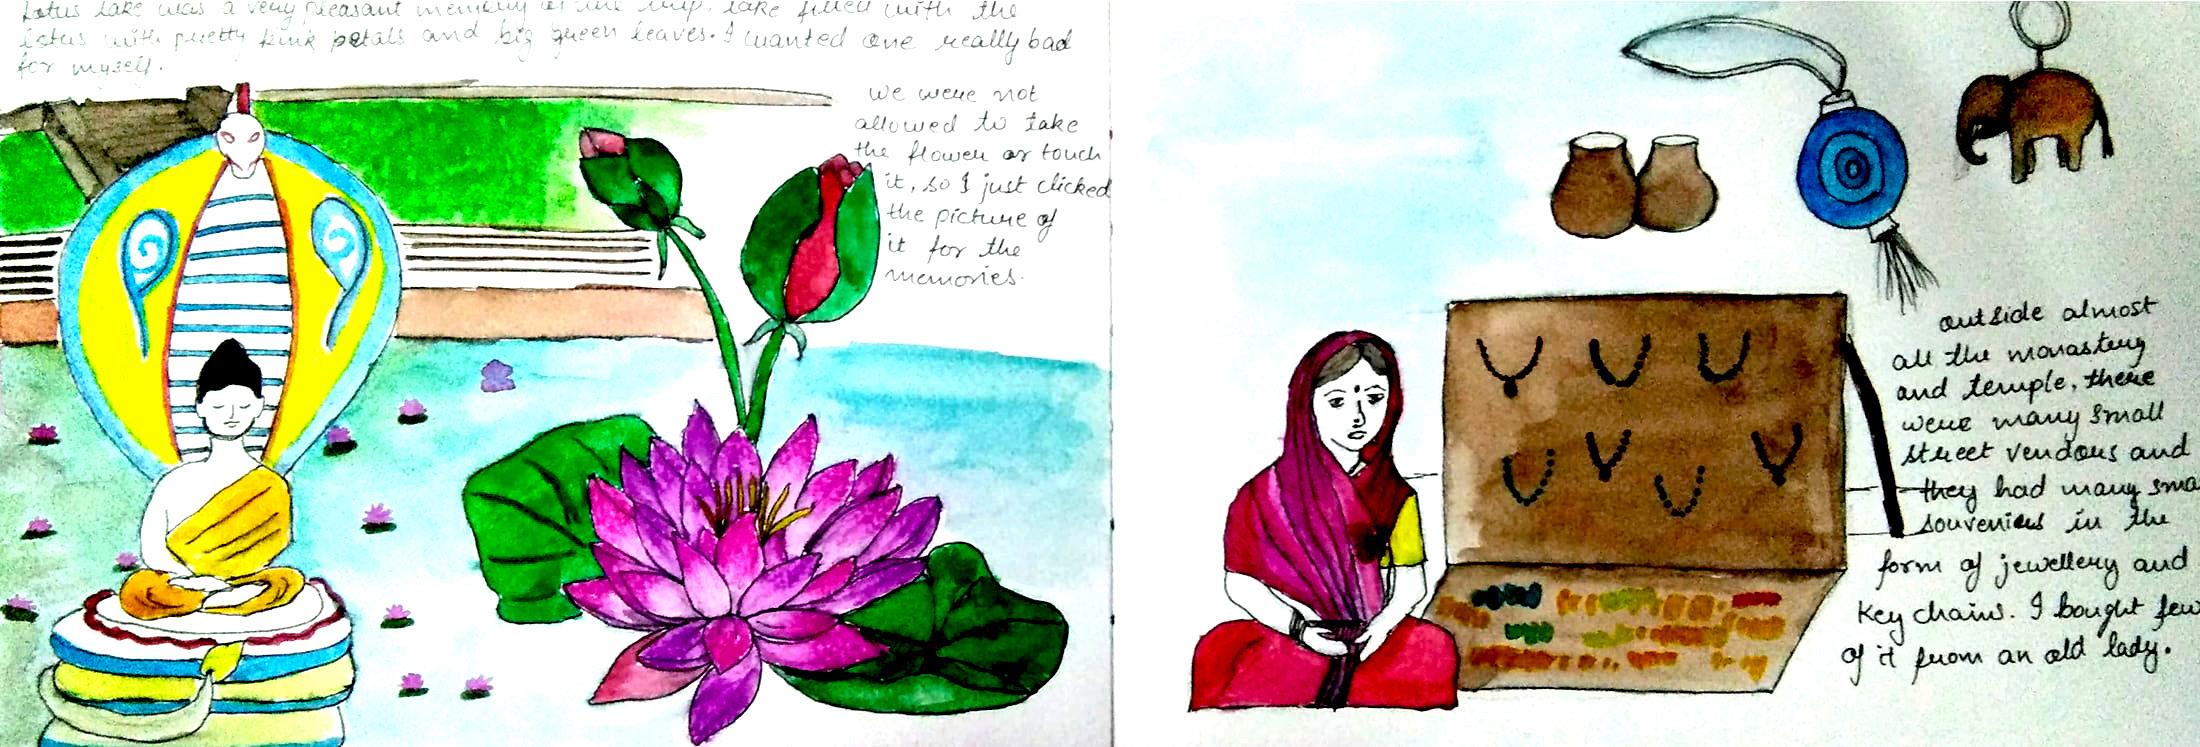 Lotus lake was a very pleasant memory of the trip, lake filled with the
lotus with pretty pink petals and big green leaves. I wanted one really bad
for myself.
we were not
allowed to take
the flower or touch
it, so I just clicked
the picture of
it for the
memories.
outside almost
all the monastery
and temple, there
were many small
street vendors and
they had many sma
souvenirs in the
form of jewellery and
key chains. I bought few
of it from an old lady.